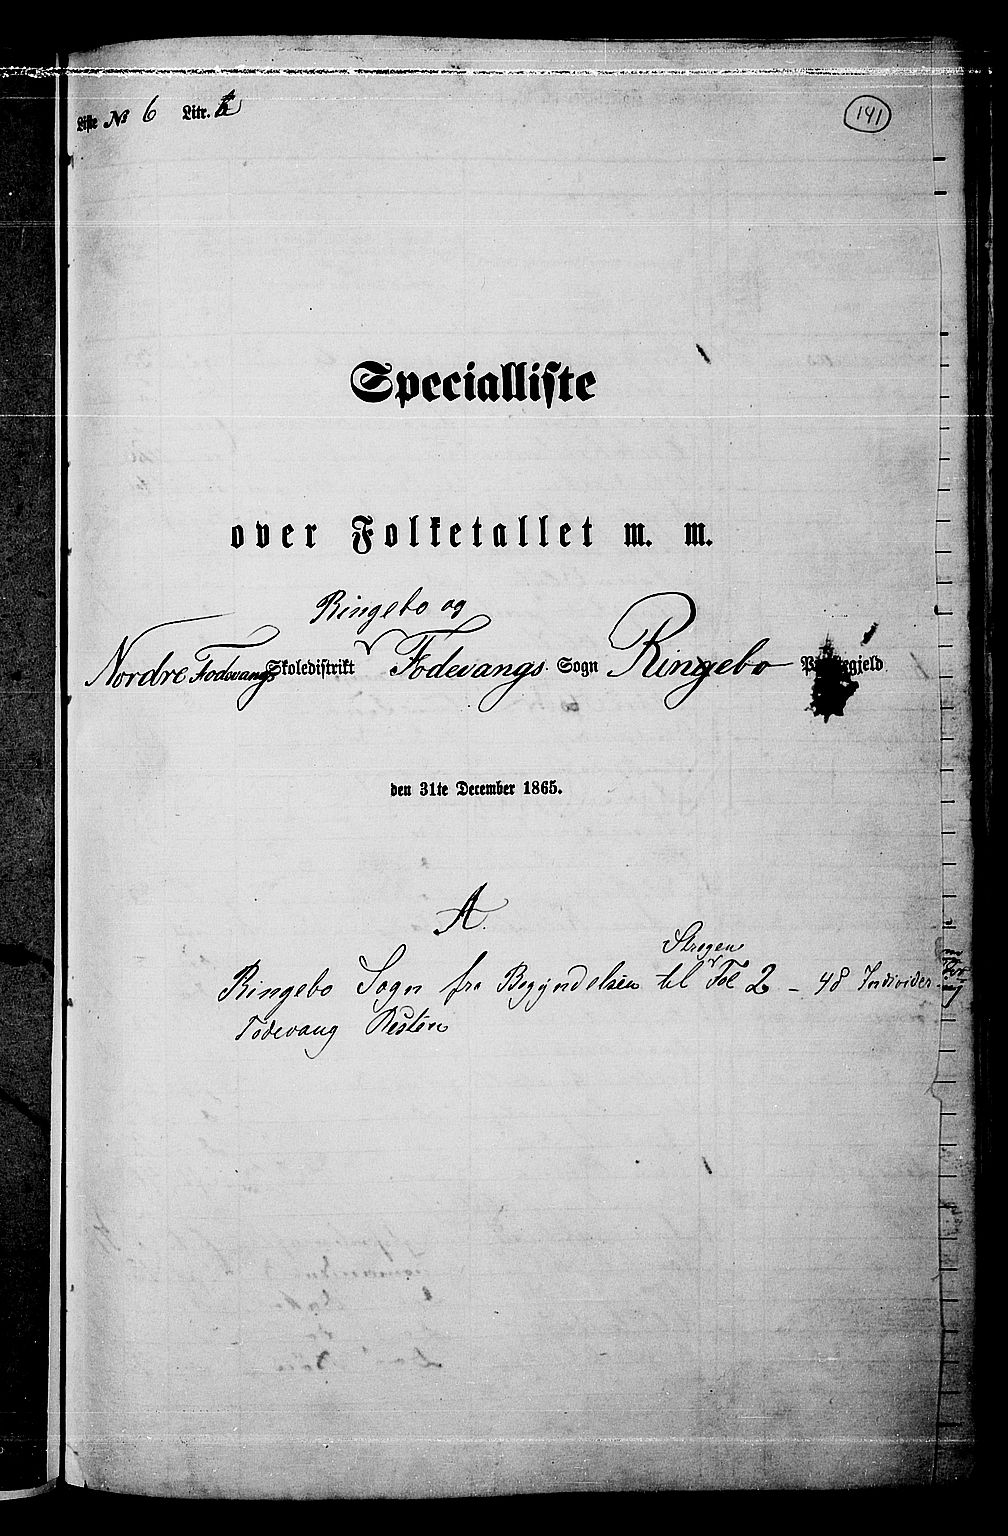 Liste No 6 Litr. a
141
Specialliste
over Folketallet m. m.
Ringebo og
Nordre Fodevangs Skoledistrikt Fodevangs Sogn Ringebo Præstegjeld
den 31te December 1865.
A.
Stregen
Ringebo Sogn fra Begyndelsen til Fol 2 - 48 Individer
Fodevang Resten